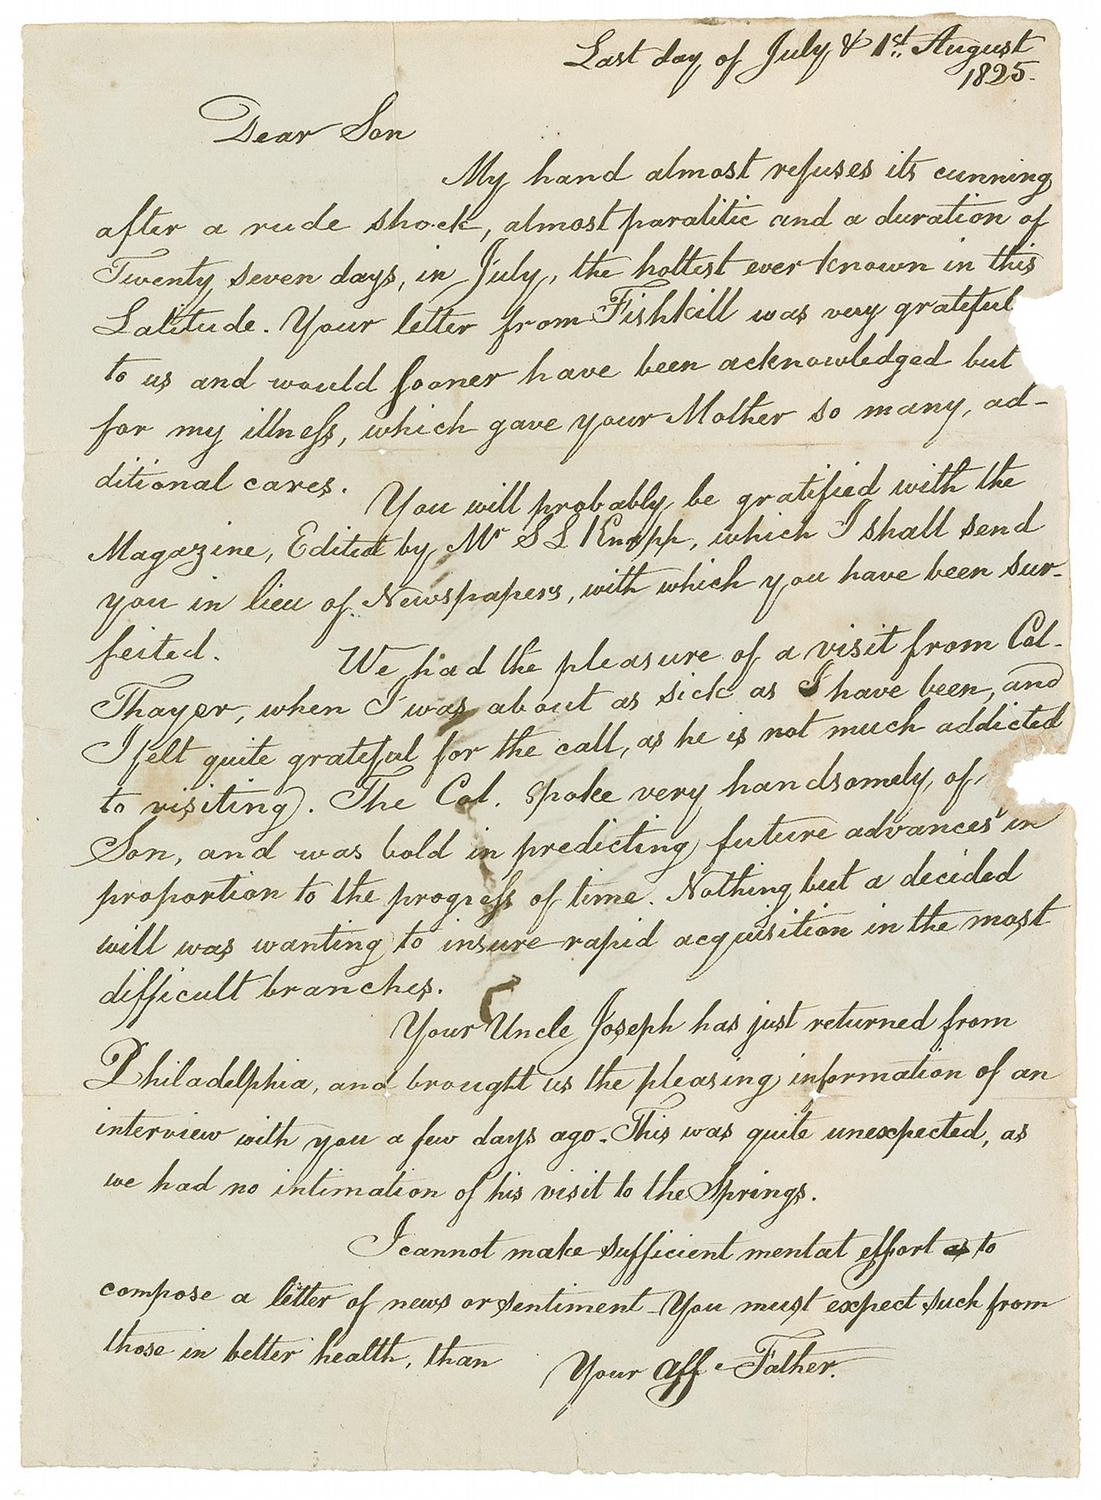 Last day of July & 1st. August
1825.
Dear Son
My hand almost refuses its cunning
after a rude shock, almost paralitic and a duration of
Twenty seven days, in July, the hottest ever known in this
Latitude. Your letter from Fishkill was very grateful
to us and would sooner have been acknowledged but
for my illness, which gave your Mother so many, ad-
ditional cares. You will probably be gratified with the
Magazine, Edited by Mr S L Knapp, which I shall send
you in lieu of Newspapers, with which you have been sur-
feited. We had the pleasure of a visit from Col.
Thayer, when I was about as sick as I have been, and
I felt quite grateful for the call, as he is not much addicted
to visiting. The Col. spoke very handsomely, of
Son, and was bold in predicting future advances in
proportion to the progress of time. Nothing but a decided
will was wanting to insure rapid acquisition in the most
difficult branches.
Your Uncle Joseph has just returned from
Philadelphia, and brought us the pleasing information of an
interview with you a few days ago. This was quite unexpected, as
we had no intimation of his visit to the Springs.
I cannot make sufficient mental effort as to
compose a letter of news or sentiment - You must expect such from
those in better health, than Your aff. Father.